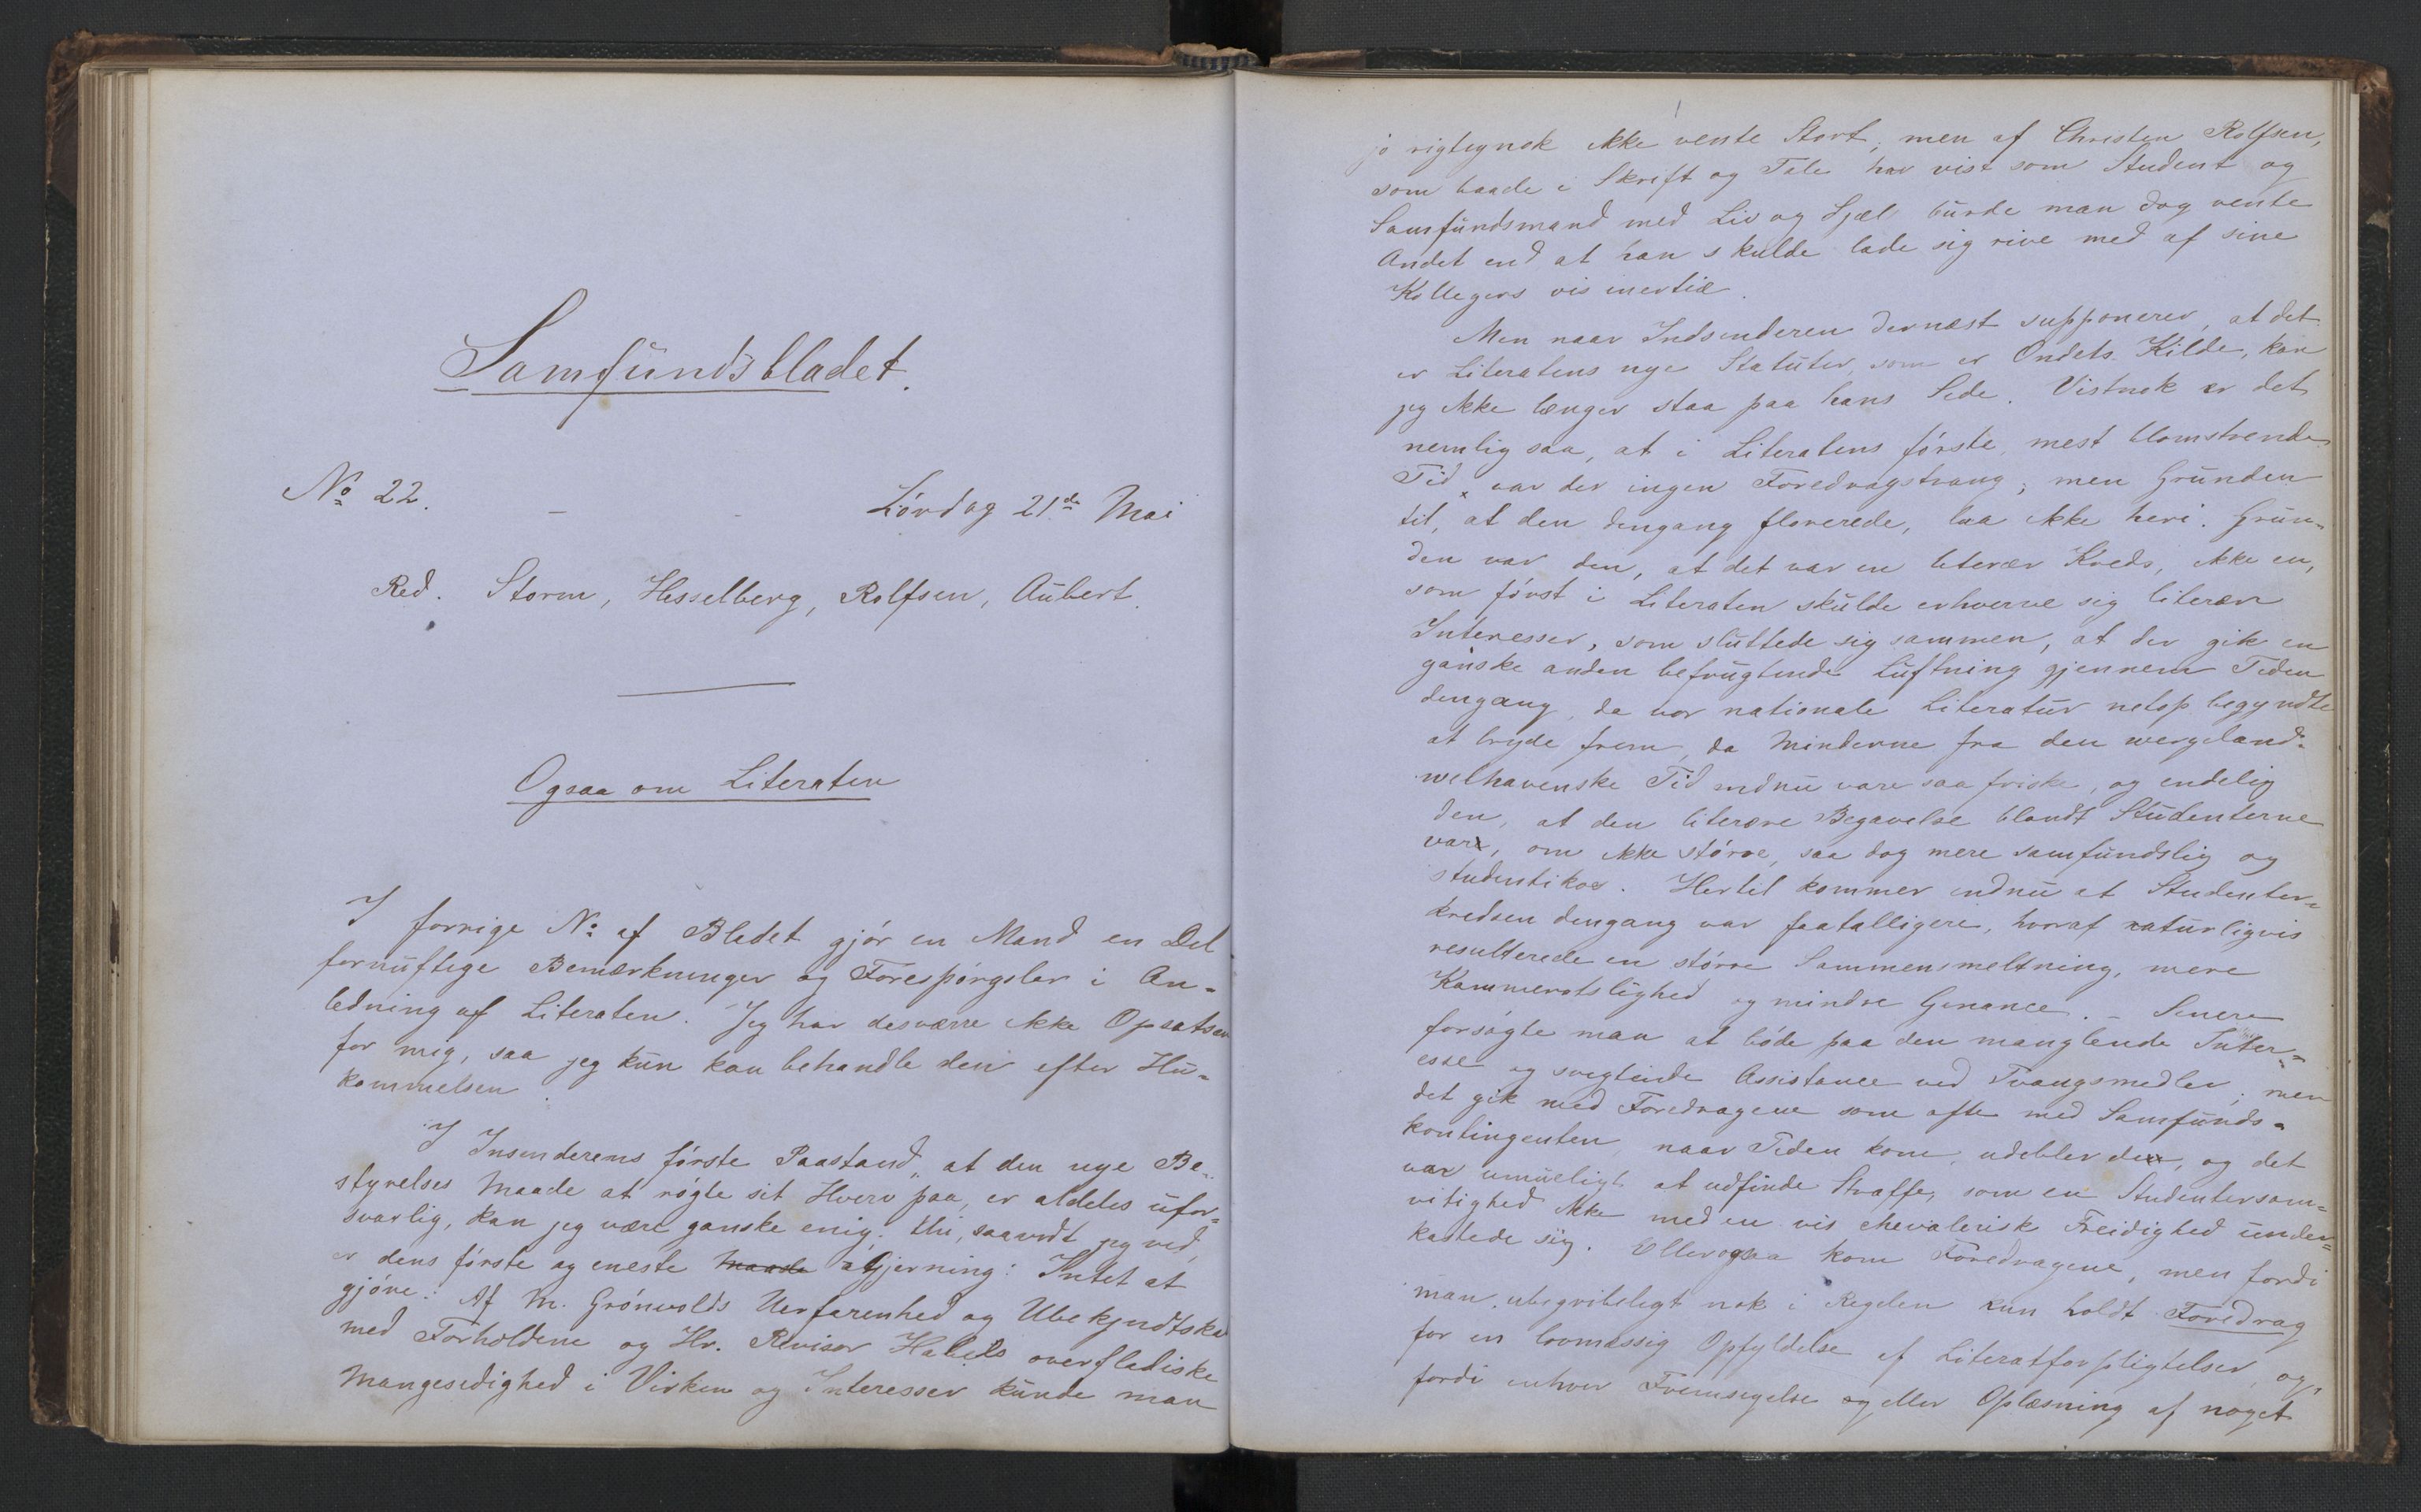 Samfundsbladet.
No 22.
Lørdag 21de Mai
Red. Storm, Hesselberg, Rolfsen, Aubert.
Ogsaa om Literaten
I forrige No af Bladet gjør en Mand en Del
fornuftige Bemærkninger og Forespørgsler i An-
ledning af Literaten. Jeg har desværre ikke Opsatsen
for mig, saa jeg kun kan behandle den efter Hu-
kommelsen.
I Insenderens første Paastand, at den nye Be-
styrelses Maade at røgte sit Hverv paa, er aldeles ufor-
svarlig, kan jeg være ganske enig; thi, saavidt jeg ved,
er dens første og eneste Maade Gjerning: Intet at
gjøre. Af M. Grønvolds Uerfarenhed og Ubekjendtskab
med Forholdene og Hr. Revisor Habels overfladiske
Mangesidighed i Virken og Interesser kunde man
jo rigtignok ikke vente Stort, men af Christen Rolfsen,
som baade i Skrift og Tale har vist som Student og
Samfundsmand med Liv og Sjæl burde man dog vente
Andet end at han skulde lade sig rive med af sine
Kollegers vis inertiæ.
Men naar Indsenderen dernæst supponerer, at det
er Literatens nye Statuter, som er Ondets Kilde, kan
jeg ikke længer staa paa hans Side. Vistnok er det
nemlig saa, at i Literatens første, mest blomstrende
Tid, var der ingen Foredragstvang; men Grunden
til, at den dengang florerede, laa ikke heri. Grun-
den var den, at det var en literær Kreds, ikke en,
som først i Literaten skulde erhverve sig literære
Interesser, som sluttede sig sammen, at der gik en
ganske anden befrugtende Luftning gjennem Tiden
dengang, da vor nationale Literatur netop begyndte
at bryde frem, da Minderne fra den wergeland-
welhavenske Tid endnu vare saa friske, og endelig
den, at den literære Begavelse blandt Studenterne
var, om ikke større, saa dog mere samfundslig og
studentikos. Hertil kommer endnu at Studenter-
kredsen dengang var faatalligere, hvoraf naturligvis
resulterede en større Sammensmeltning, mere
Kammeratslighed og mindre Genance. – Senere
forsøgte man at bøde paa den manglende Inter-
esse og svigtende Assistance ved Tvangsmidler; men
det gik med Foredragene som ofte med Samfunds-
kontingenten, naar Tiden kom, udeblev de, og det
var umueligt at udfinde Straffe, som en Studentersam-
vitighed ikke med en vis chevalerisk Freidighed under-
kastede sig. Eller ogsaa kom Foredragene, men fordi
man, ubegribeligt nok i Regelen kun holdt Foredrag
for en lovmæssig Opfyldelse af Literatforpligtelser, og
fordi enhver Fremsigelse og eller Oplæsning af noget